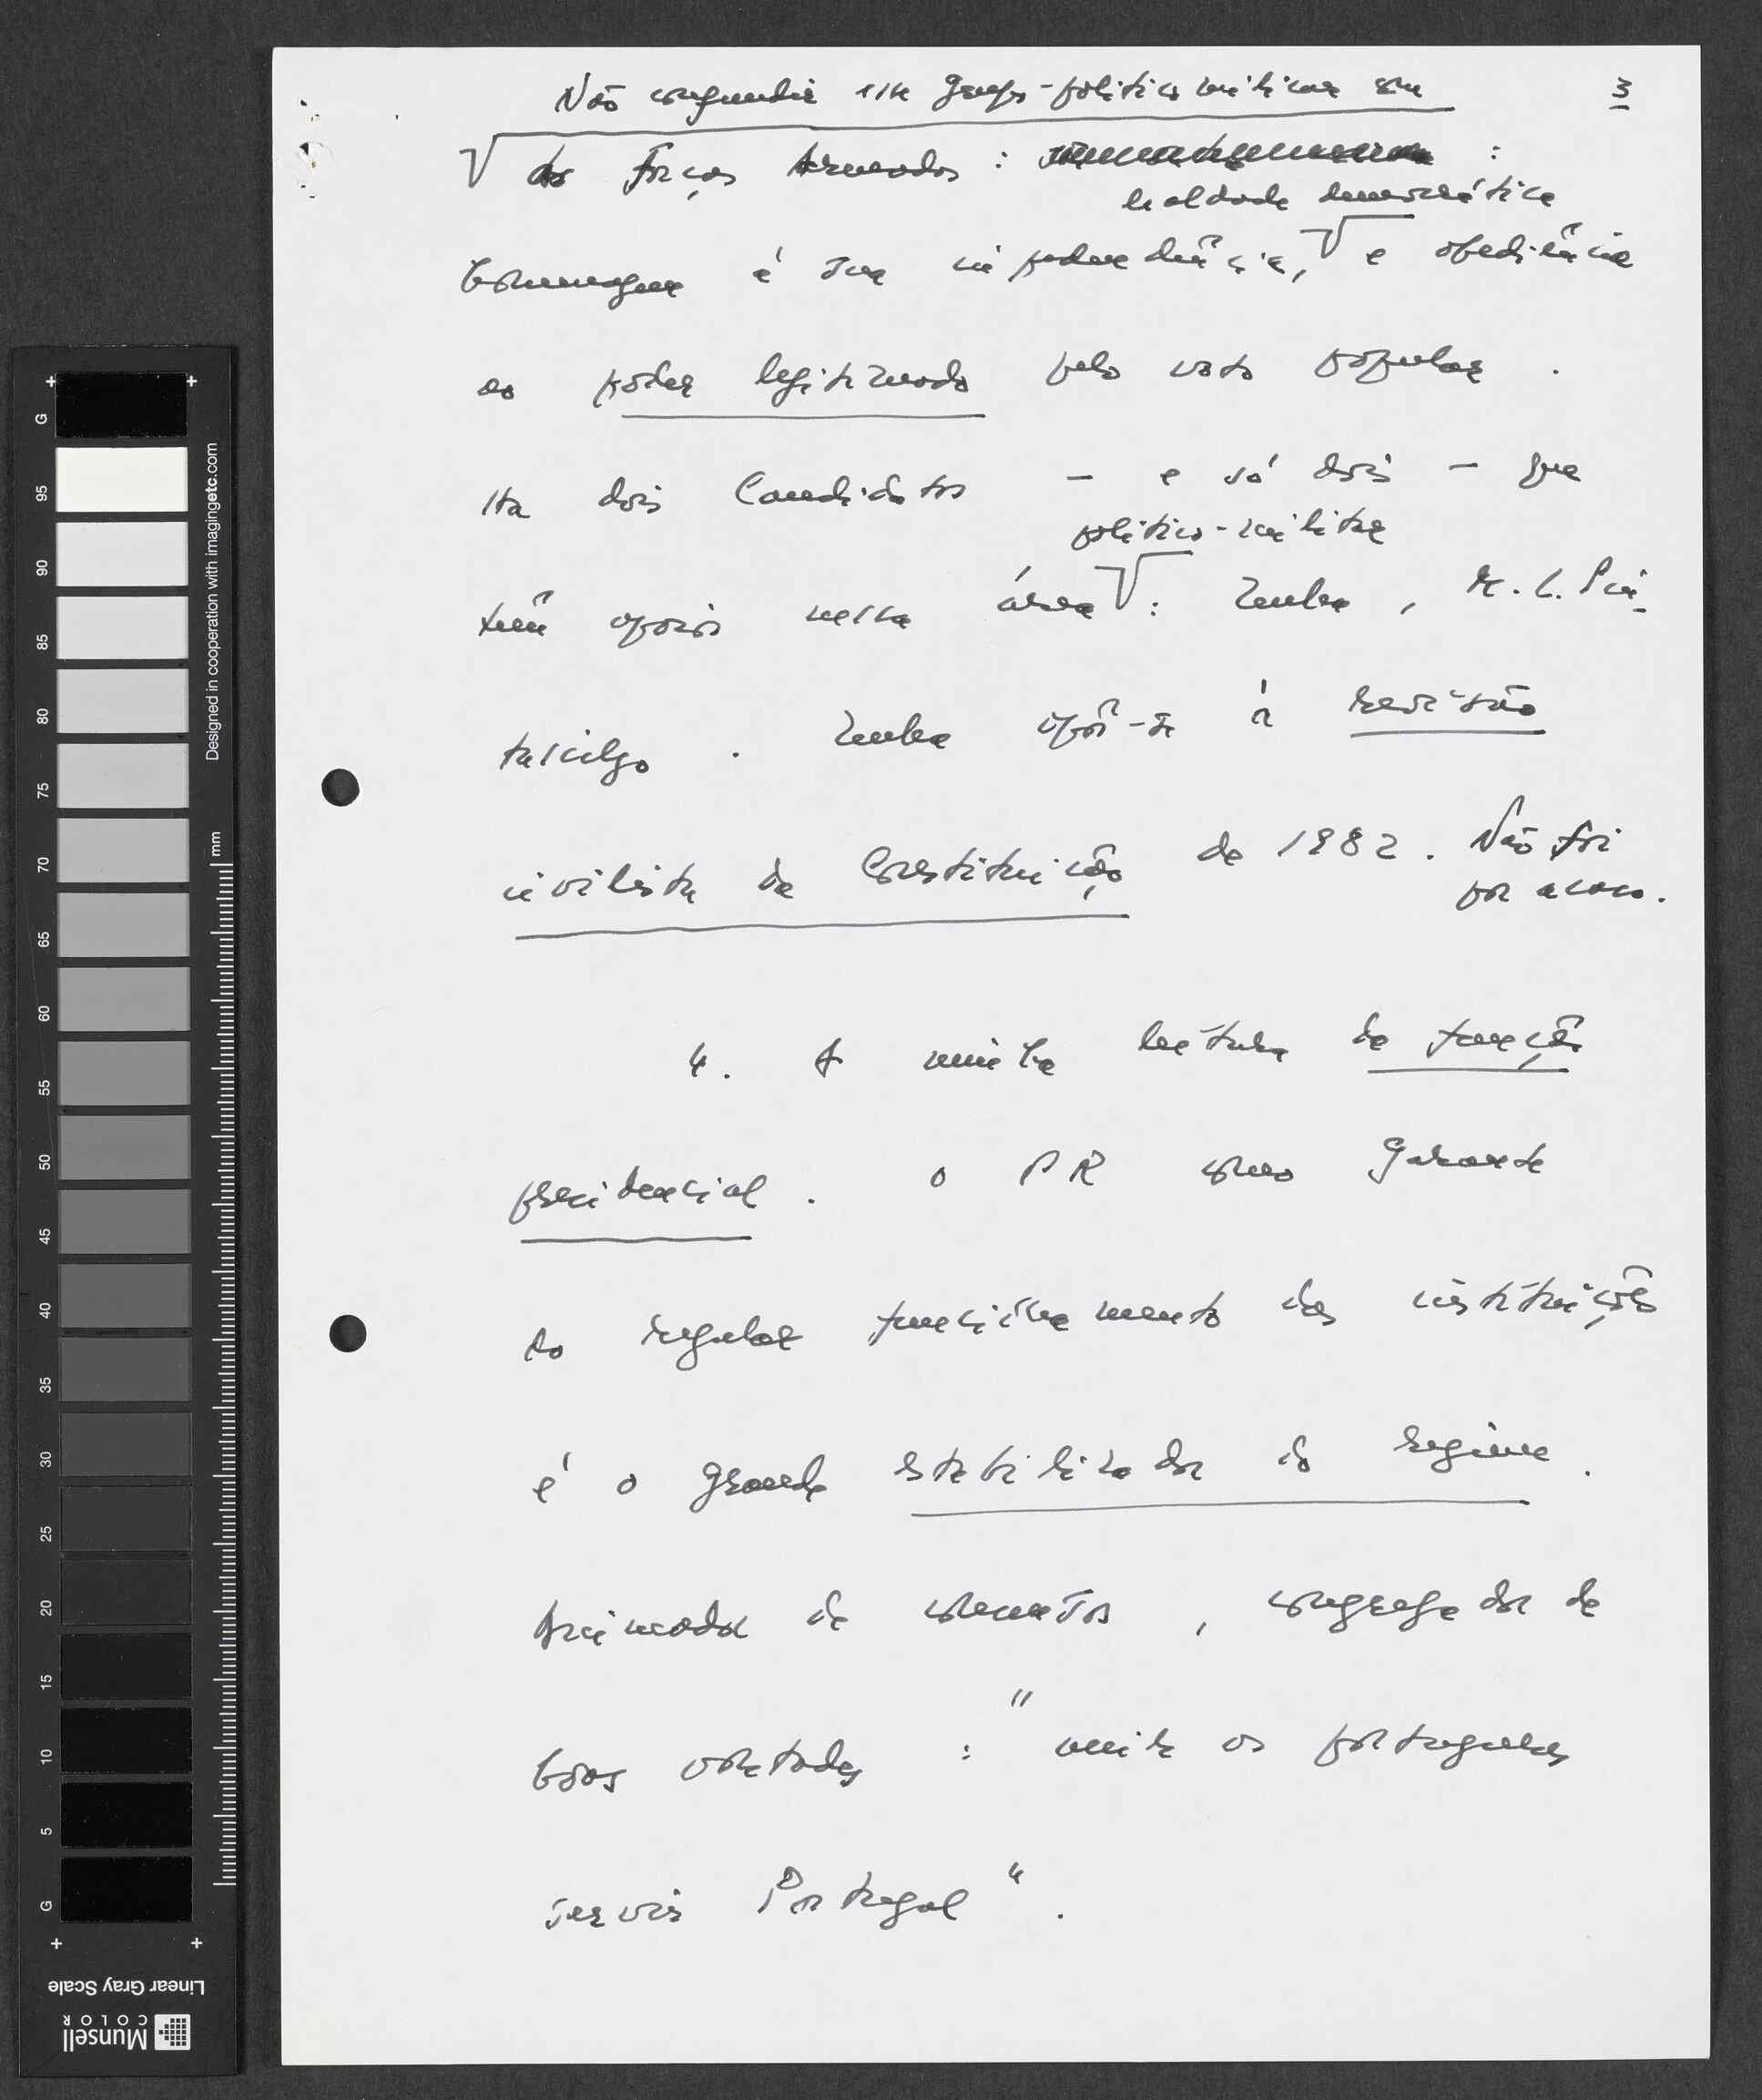 Não confundir esse grupo-político militar com
3
as Forças Armadas :
:
lealdade democrática
homenagem à sua independência, e obediência
ao poder legitimado pelo voto popular .
Há dois Candidatos – e só dois – que
político-militar
têm apoio nessa área : Zenha , M. L. Pin-
tasilgo . Zenha opôs-se à revisão
civilista da Constituição de 1982 . Não foi
por acaso .
4 . A minha leitura da função
presidencial . O PR como garante
do regular funcionamento das instituições
é o grande estabilizador do regime .
Animador de consensos , congregador de
boas vontades : " unir os portugueses
servir Portugal " .
G
95
90
85
80
75
70
65
60
55
50
45
40
35
30
25
20
15
10
5
G
Designed in cooperation with imagingetc.com
mm
Linear Gray Scale
Munsell
COLOR